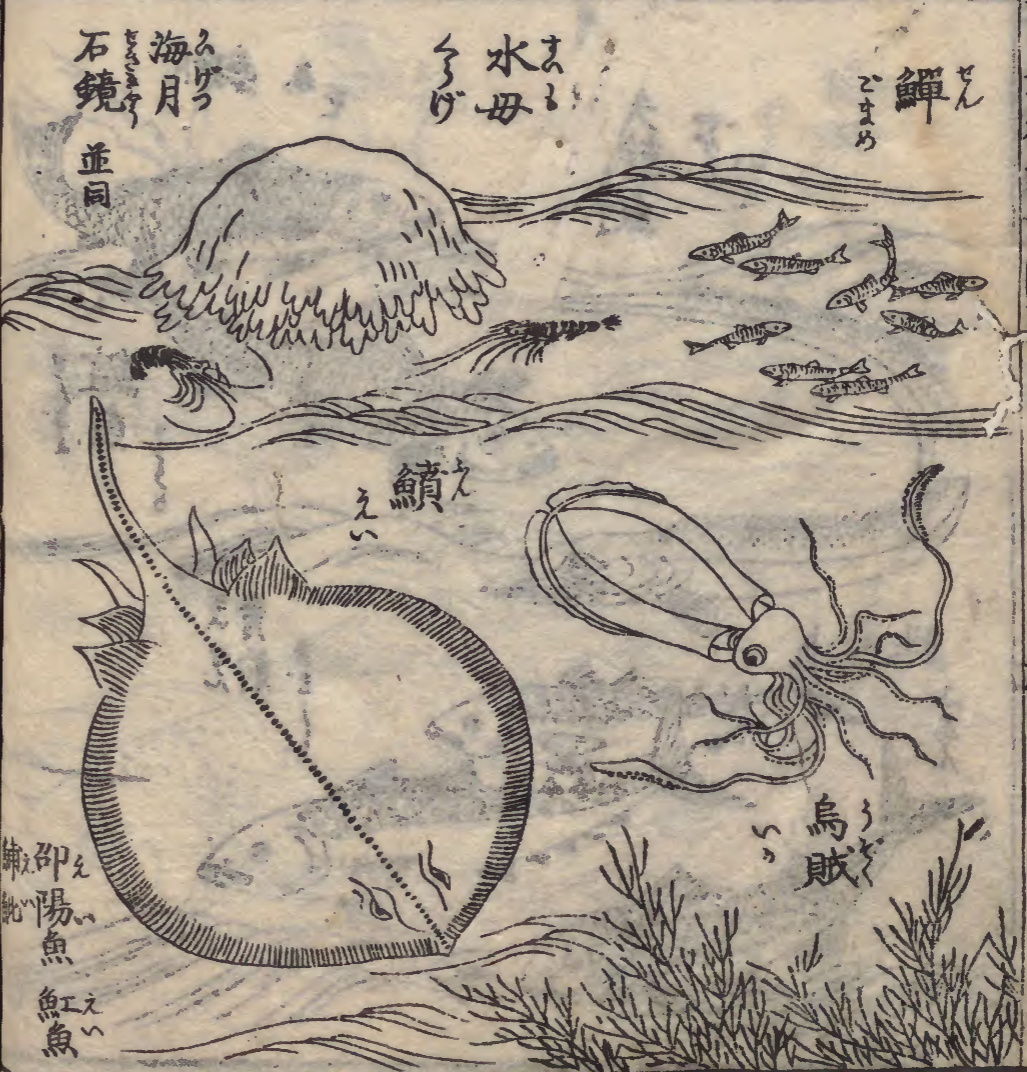 鱓 せん
ごまめ
水母 すいも
くらげ
海月 かいげつ
石鏡 せききやう
並同
鱝 ふん
えい
烏賊 うぞく
いか
邵陽魚 えい
魟魚 えい